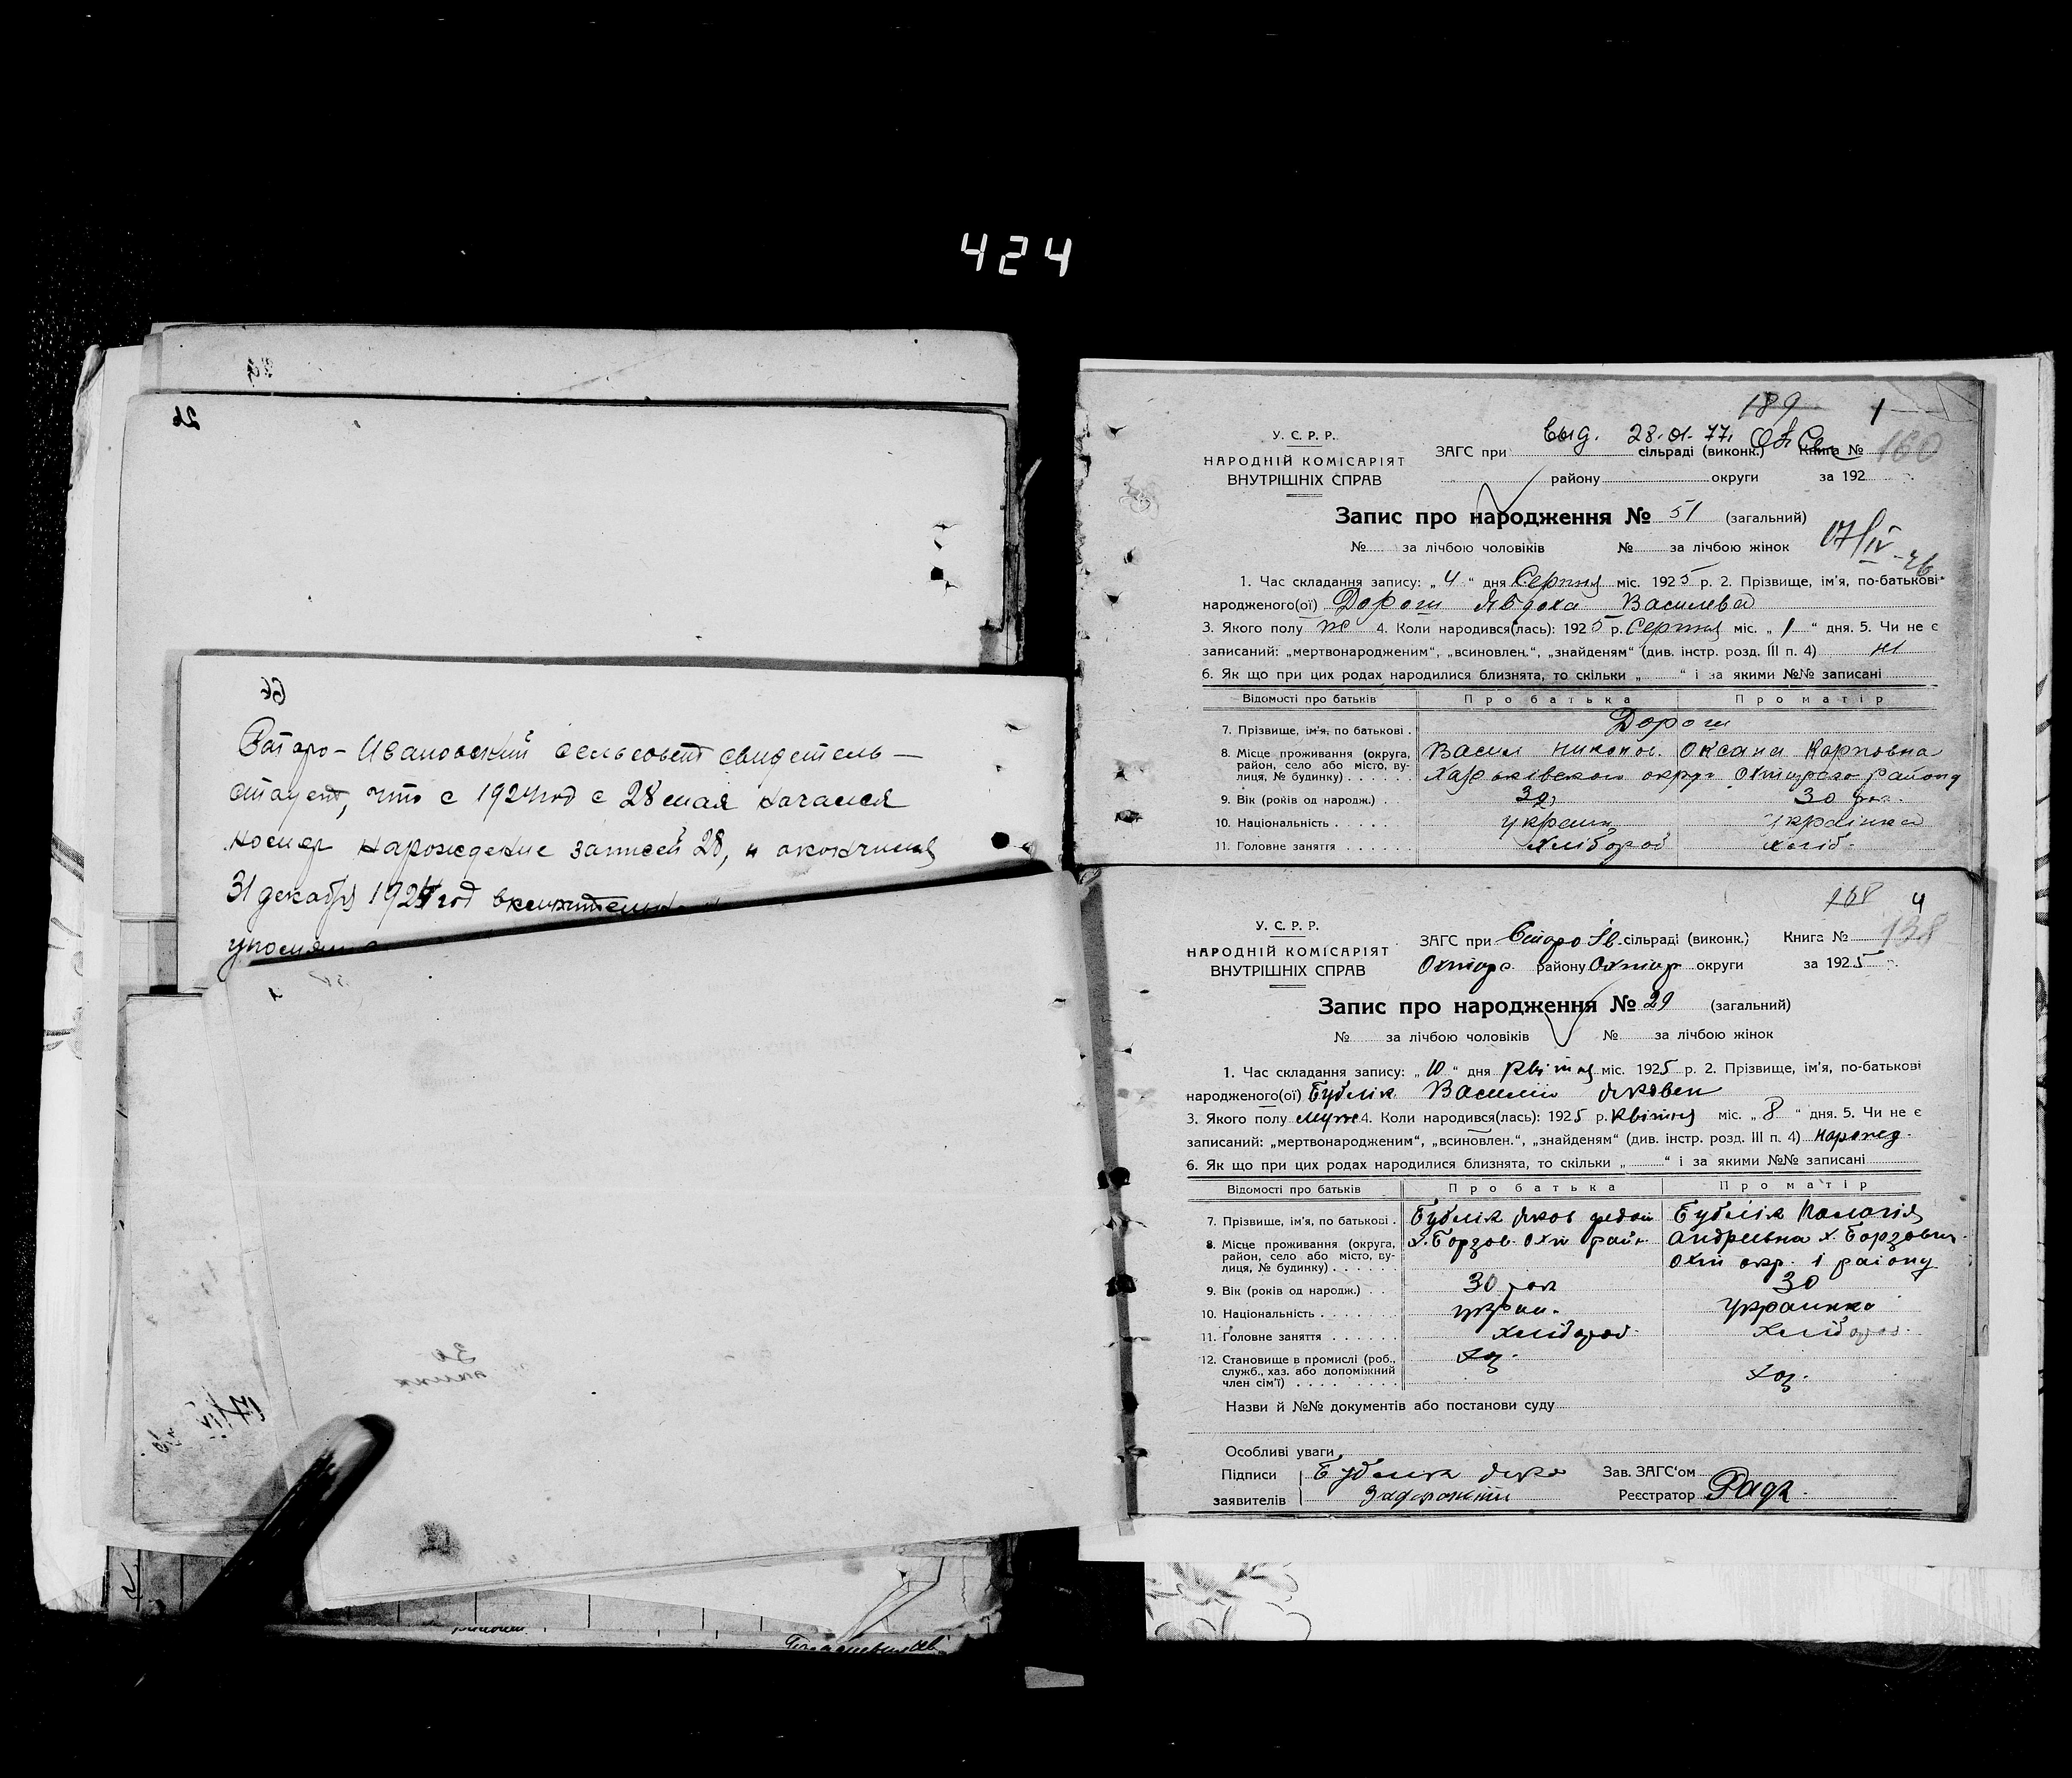 424
26
Старо-Ивановский сельсовет свидетель-
ствует, что с 1924 год с 28 мая начался
номер нарождение записей 28, и окончился
31 декабря 1924 год включительно
189 1
У. С. Р. Р.
НАРОДНІЙ КОМІСАРІЯТ
ВНУТРІШНІХ СПРАВ
Выд. 28.01.77.
ЗАГС при сільраді (виконк.) Книга № 160
району округи за 192
Запис про народження № 51 (загальний)
№ за лічбою чоловіків № за лічбою жінок
17/IV-26
1. Час складання запису: „4“ дня Серпня міс. 1925 р. 2. Прізвище, ім'я, по-батькові
народженого(ої) Дорош Явдоха Василева
3. Якого полу ж 4. Коли народився(лась): 1925 р. Серпня міс. „1“ дня. 5. Чи не є
записаний: „мертвонародженим“, „всиновлен.“, „знайденям“ (див. інстр. розд. III п. 4) ні
6. Як що при цих родах народилися близнята, то скільки „ “ і за якими №№ записані
Відомості про батьків Про батька Про матір
7. Прізвище, ім'я, по батькові Дорош
8. Місце проживання (округа, район, село або місто, вулиця, № будинку) Васил Никопов. Оксана Карповна
Харьківского округ Охтирсго району
9. Вік (років од народж.) 30 30 рок.
10. Національність украин українка
11. Головне заняття хлібороб хліб.
168 4
У. С. Р. Р.
НАРОДНІЙ КОМІСАРІЯТ
ВНУТРІШНІХ СПРАВ
ЗАГС при Старо Ів. сільраді (виконк.) Книга № 138
Охтирс. району Охтир округи за 1925 р.
Запис про народження № 29 (загальний)
№ за лічбою чоловіків № за лічбою жінок
1. Час складання запису: „10“ дня Квітня міс. 1925 р. 2. Прізвище, ім'я, по-батькові
народженого(ої) Бублік Василій Яковен
3. Якого полу муж 4. Коли народився(лась): 1925 р. Квітня міс. „8“ дня. 5. Чи не є
записаний: „мертвонародженим“, „всиновлен.“, „знайденям“ (див. інстр. розд. III п. 4) нарожед.
6. Як що при цих родах народилися близнята, то скільки „ “ і за якими №№ записані
Відомості про батьків Про батька Про матір
7. Прізвище, ім'я, по батькові Бублік Яков Бублік Палагія
8. Місце проживання (округа, район, село або місто, вулиця, № будинку) х. Борзов. Охт райн Андреевна х. Борзовки.
Охт окр. 1 району
9. Вік (років од народж.) 30 рок 30
10. Національність украин. украинка
11. Головне заняття хлібороб. хлібороб.
12. Становище в промислі (роб., служб., хаз. або допоміжний член сім'ї) хоз. хоз.
Назви й №№ документів або постанови суду
Особливі уваги
Підписи Бублик Яко Зав. ЗАГС'ом
заявителів Реєстратор Радк.